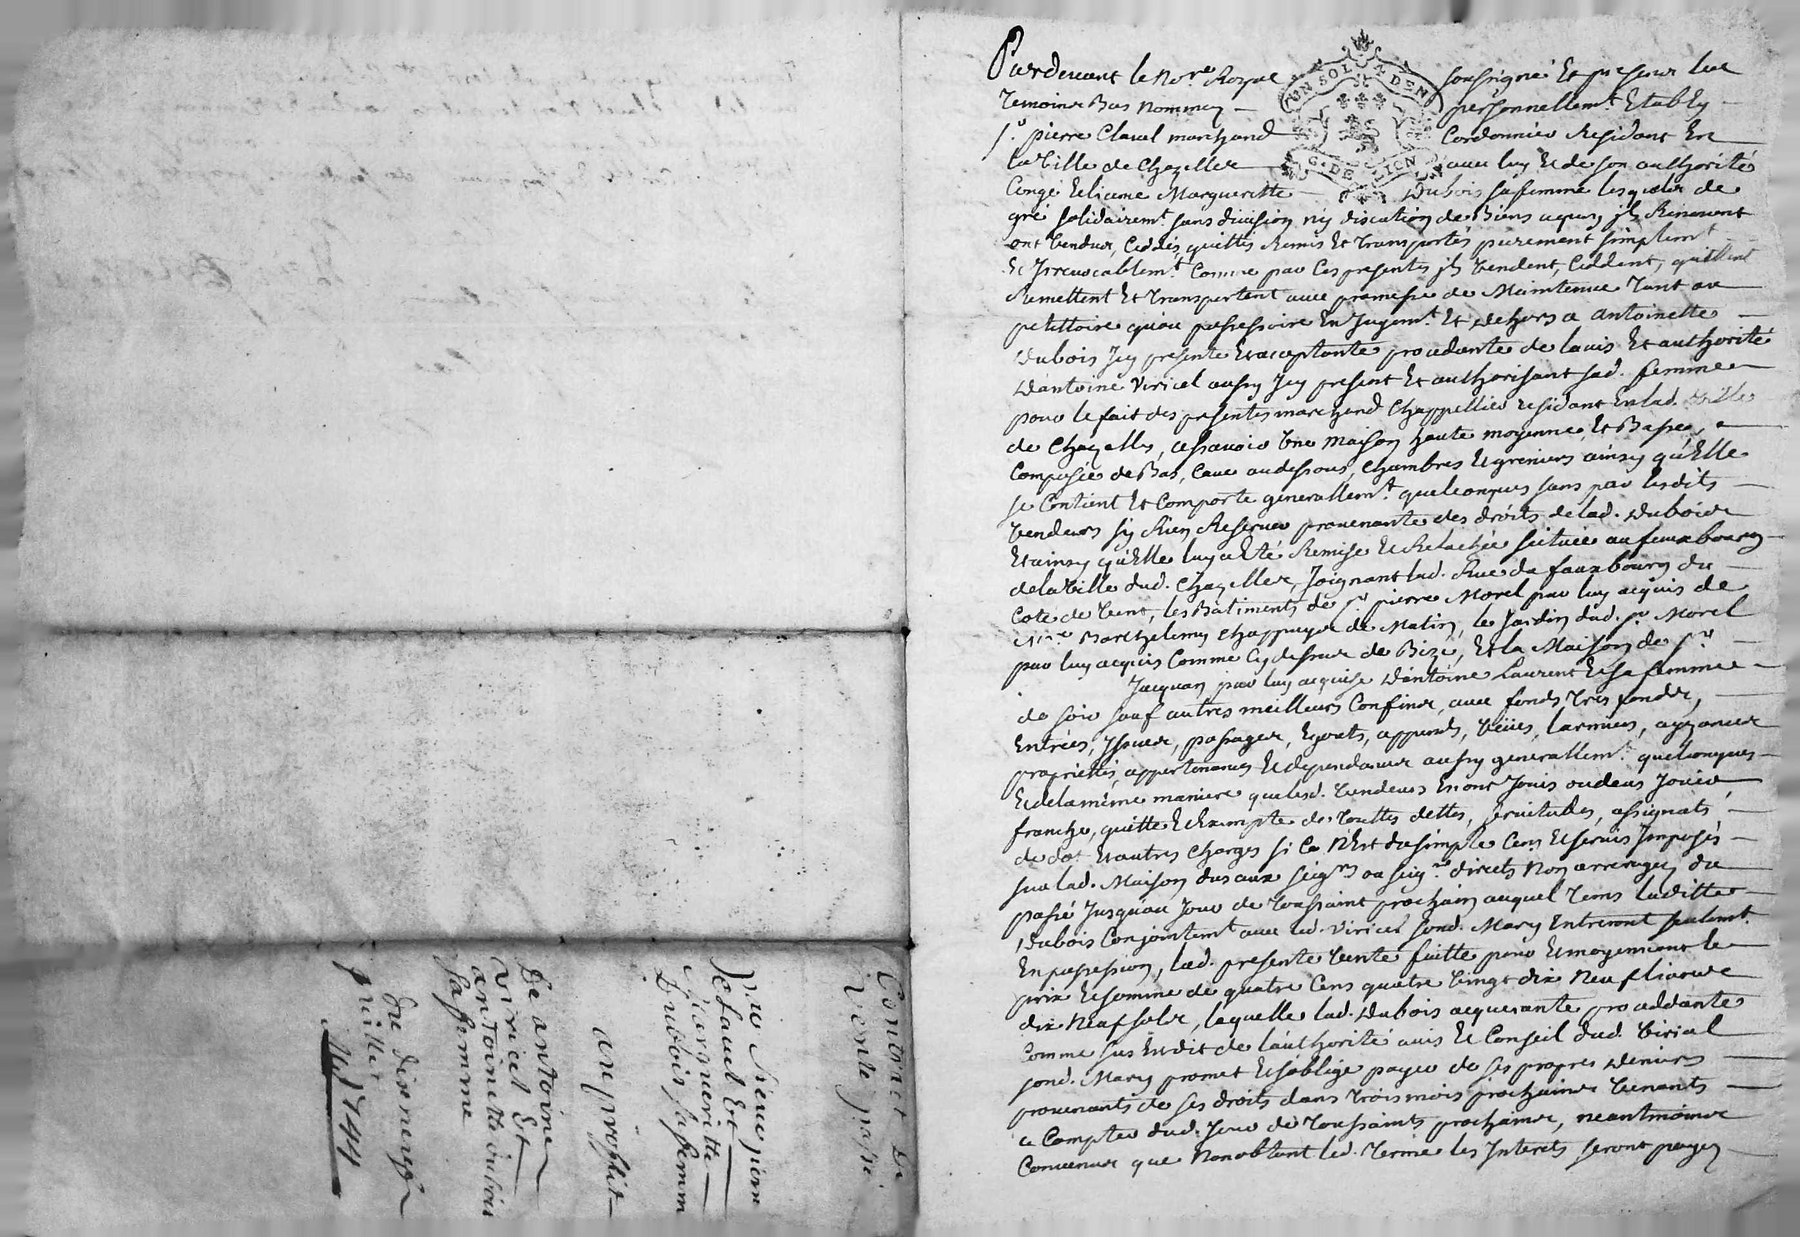 Contract de
Vente passé
par Sieur pierre
Claual Et
Margueritte
Dubois sa femme
au proffit
De antoine
Viricel Et
antoinette dubois
sa femme
Du dixneuf
juillet
1744
Pardevant le No.re Royal soussigné Et presens les
Temoins Bas Nommez personnellem.t Etably
s.r pierre Claual marchand Cordonnier Residant En
la Ville de Chazelles auec luy Et de son authorité
Congé Et licence Marguerittte Dubois sa femme lesquels de
gré solidairem.t sans diuision ny discution de Biens a quoy ils Renoncent
ont Vendus, Ceddés, quittés Remis Et Transportés purement simplem.t
Et Irreuocablem.t Comme par Ces presentes ils Vendent, Ceddent, quittent
Remettent Et Transportent auec promesse de Maintenue Tant au
petittoire qu'au possessoire En Jugem.t Et dehors a antoinette
Dubois Icy presente Et acceptante procedante de lauis Et authorité
d'antoine Viricel aussy Icy present Et authorisant sad. femme
pour le fait des presentes marchand Chappellier residant En lad. Ville
de Chazelles, assauoir Vne maison haute moyenne, Et Basse,
Composée de Bas, Caue au dessous, Chambres Et greniers ainsy qu'Elle
se Contient Et Comporte generallem.t quelconques sans par lesdits
Vendeurs sy Rien Reseruer prouenante des droits de lad. Dubois
Et ainsy qu'Elle luy a Eté Remise Et Relachée scituée au fauxbourg
de la Ville dud. Chazelles, Joignant lad. Rue du fauxbourg du
Coté de Vent, les Bâtiments de s.r pierre Morel par luy acquis de
Barthelemy Chappuy de Matin, le Jardin dud. s.r Morel
par luy acquis Comme Cy dessus de Bize, Et la Maison de s.r
Jacquan par luy acquise d'antoine Laurent Et sa femme
de soir sauf autres meilleurs Confins, auec fonds Tres fonds,
Entrées, Issues, passages, Egouts, appends, Vëues, larmiers, ayzances
proprietés, appertenances Et dependances aussy generallem.t quelconques
Et de la même maniere que lesd. Vendeurs En ont Jouis ou deus Jouir
franche, quitte Et Exempte de Touttes dettes, seruitudes, assignats,
de dot Et autres Charges si Ce N'Est du simple Cens Et seruis Imposés
sur lad. Maison dus aux seig.rs ou seig.r directs Non arreragez du
passé Jusqu'au Jour de Toussaint prochain auquel Tems laditte
Dubois Conjointem.t auec led. Viricel sond. Mary Entreront seulem.t
En possession, lad. presente Vente faitte pour Et moyennant le
prix Et somme de quatre Cens quatre Vingt dix Neuf liures
dix Neuf sols, laquelle lad. Dubois acquerante proceddante
Comme sus Est dit de l'authorité auis Et Conseil dud. Viricel
sond. Mary promet Et s'oblige payer de ses propres deniers
prouenants de ses droits dans Trois mois prochains Venants
a Compter dud. Jour de Toussaints prochaines, neantmoins
Conuenus que Nonobtant led. Terme les Interets seront payez